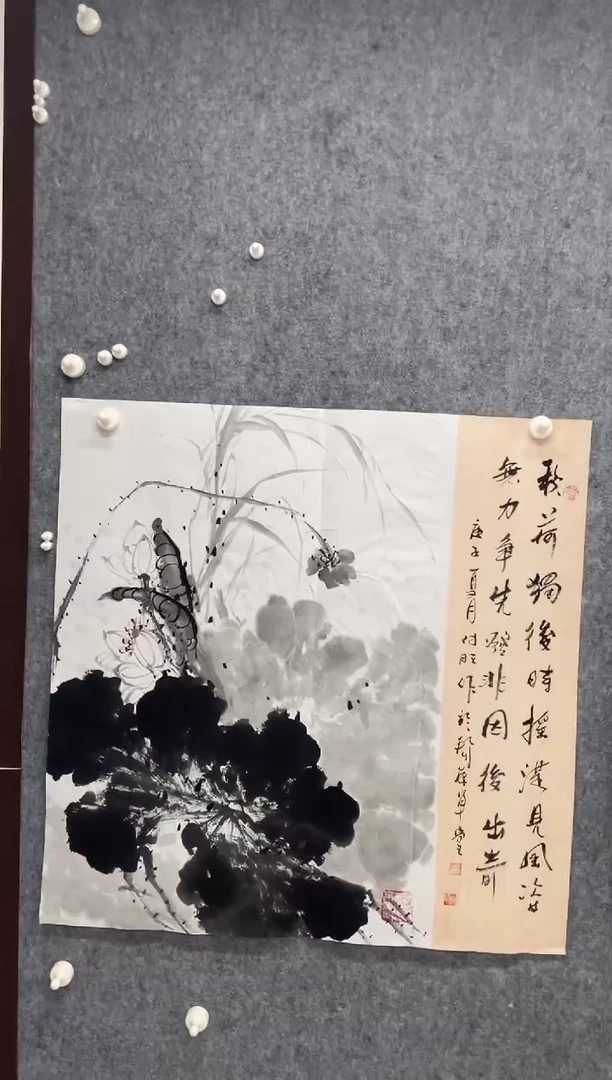 秋荷獨後時摇漾見風姿
無力争先發非因後出奇
庚子夏月付旺作於